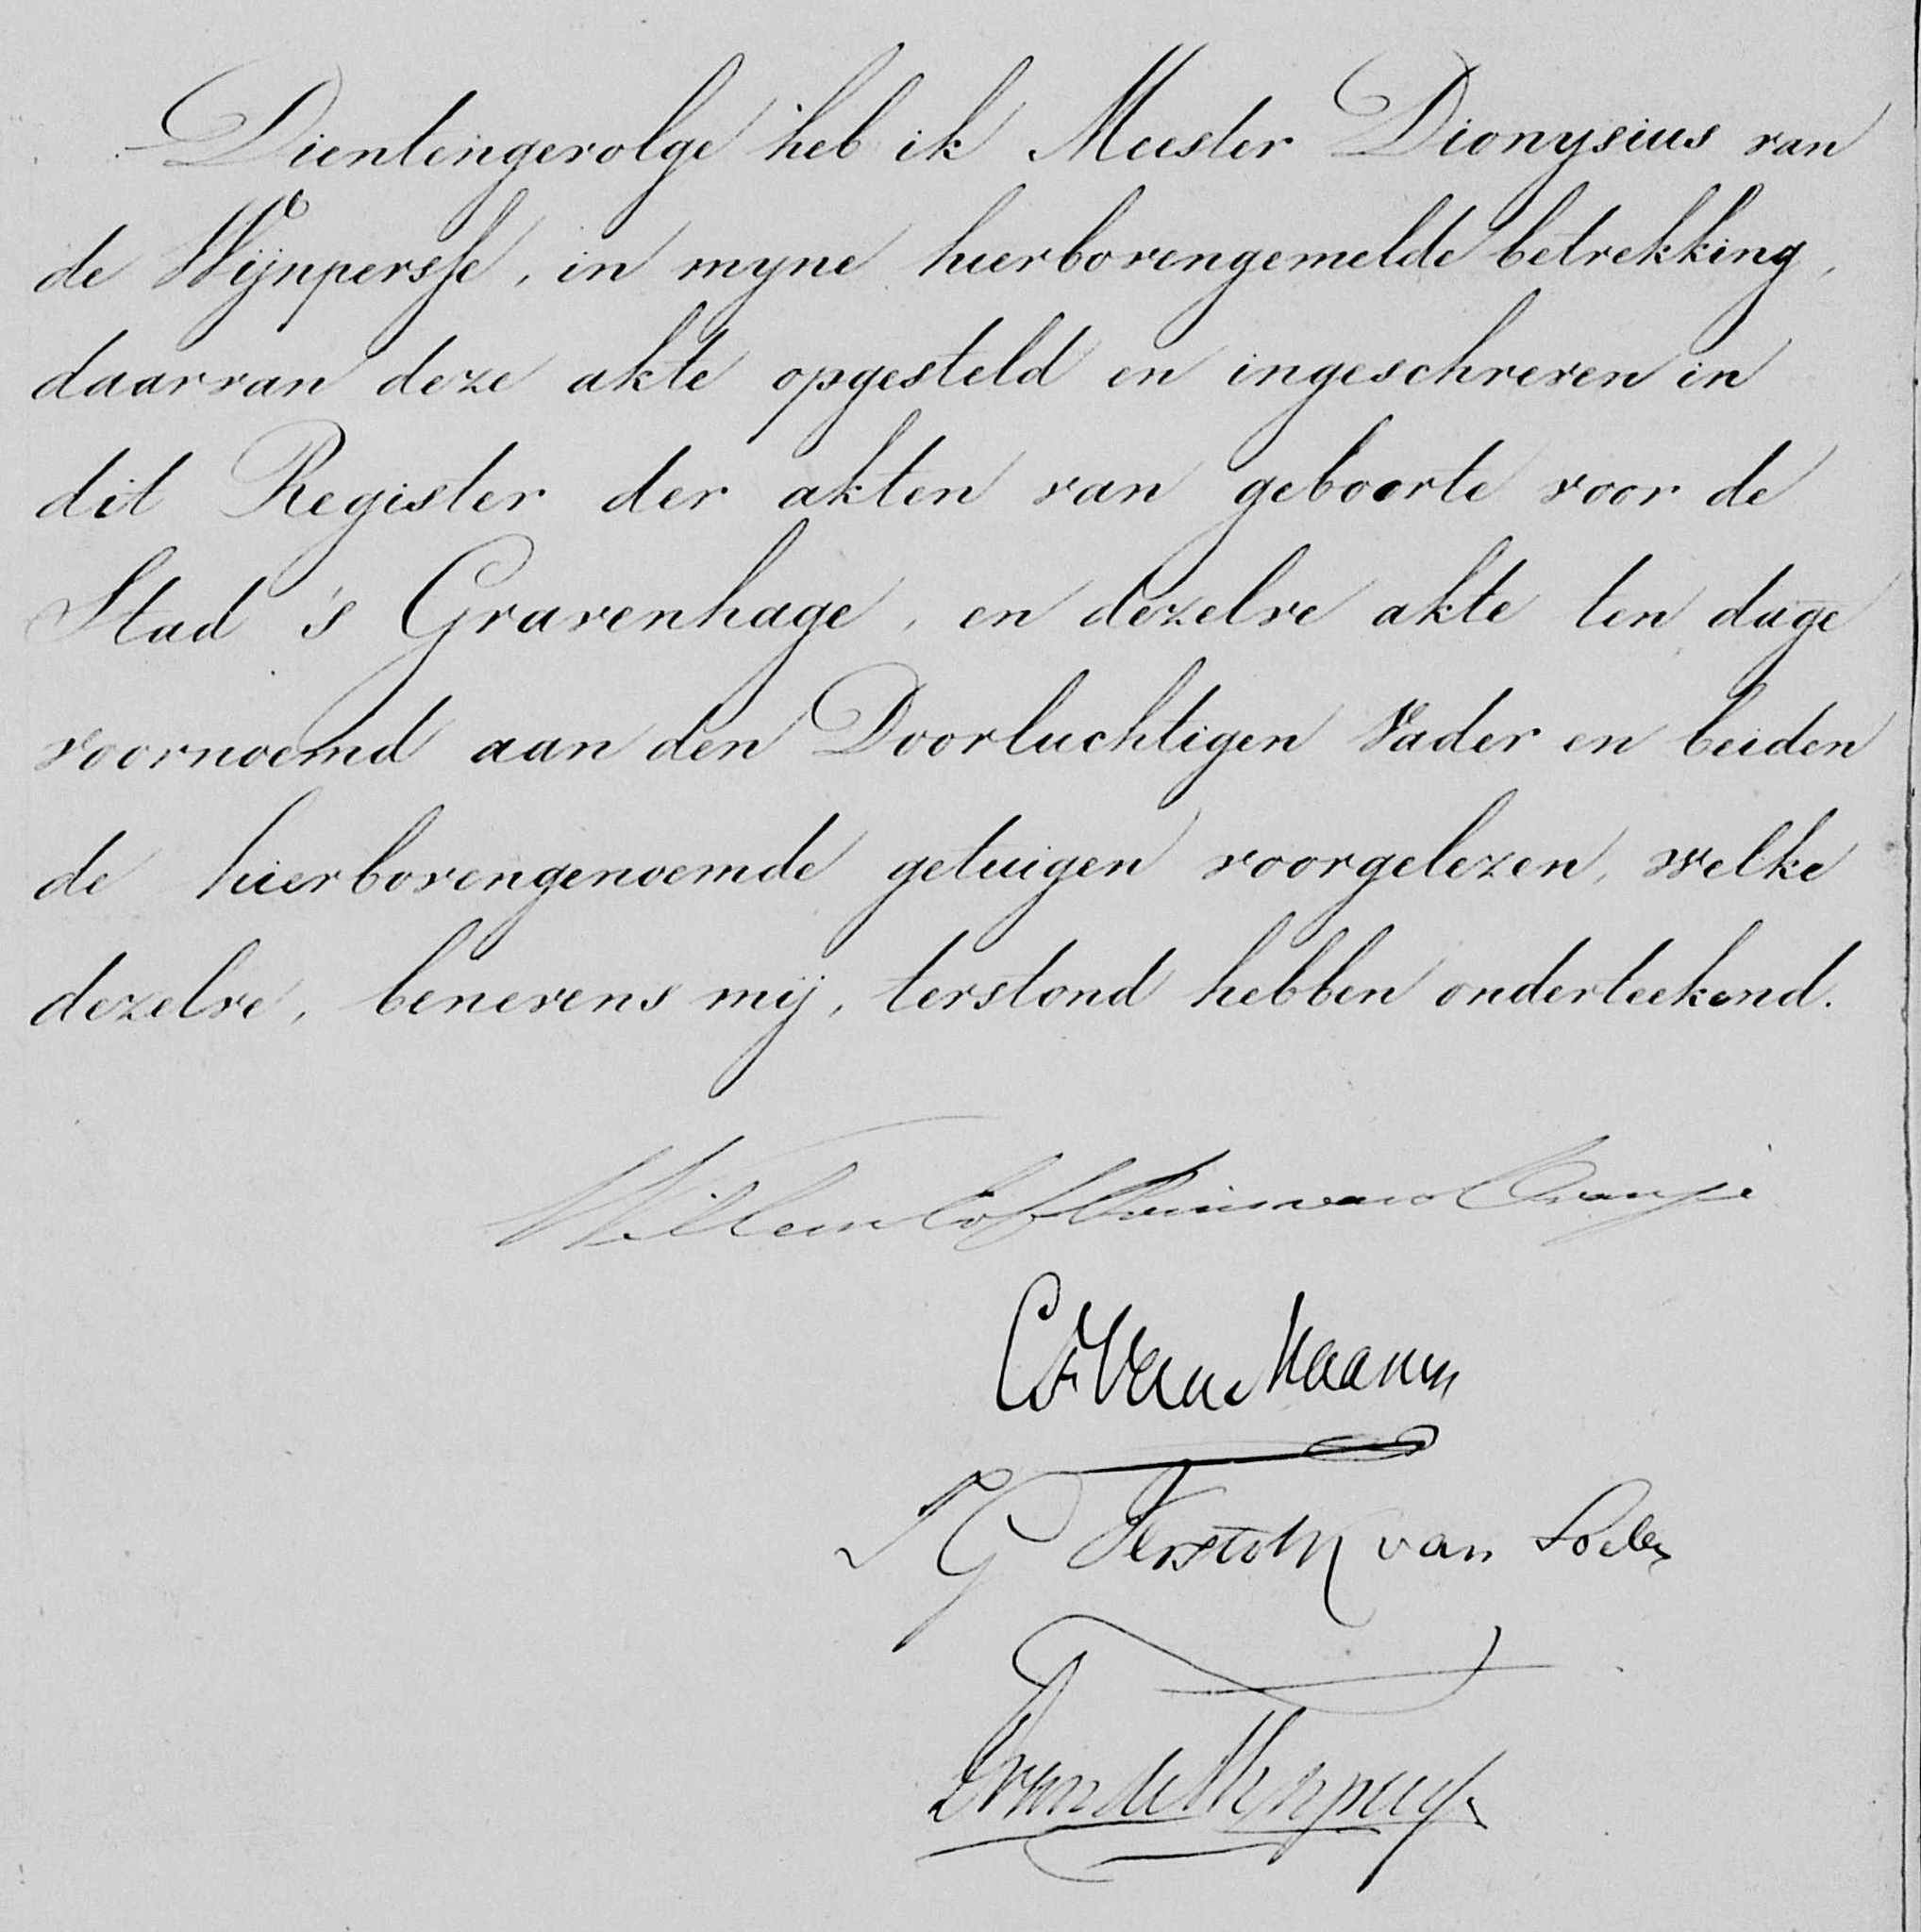 Dientengevolge heb ik Meester Dionysius van
de Wijnpersse, in myne hierbovengemelde betrekking,
daarvan deze akte opgesteld en ingeschreven in
dit Register der akten van geboorte voor de
Stad 's Gravenhage, en dezelve akte ten dage
voornoemd aan den Doorluchtigen Vader en beiden
de hierbovengenoemde getuigen voorgelezen, welke
dezelve, benevens mij, terstond hebben onderteekend.
Willem Erf Prins van Oranje
CF Van Maanen
J G Verstolk van Soelen
D van de Wijnpersse